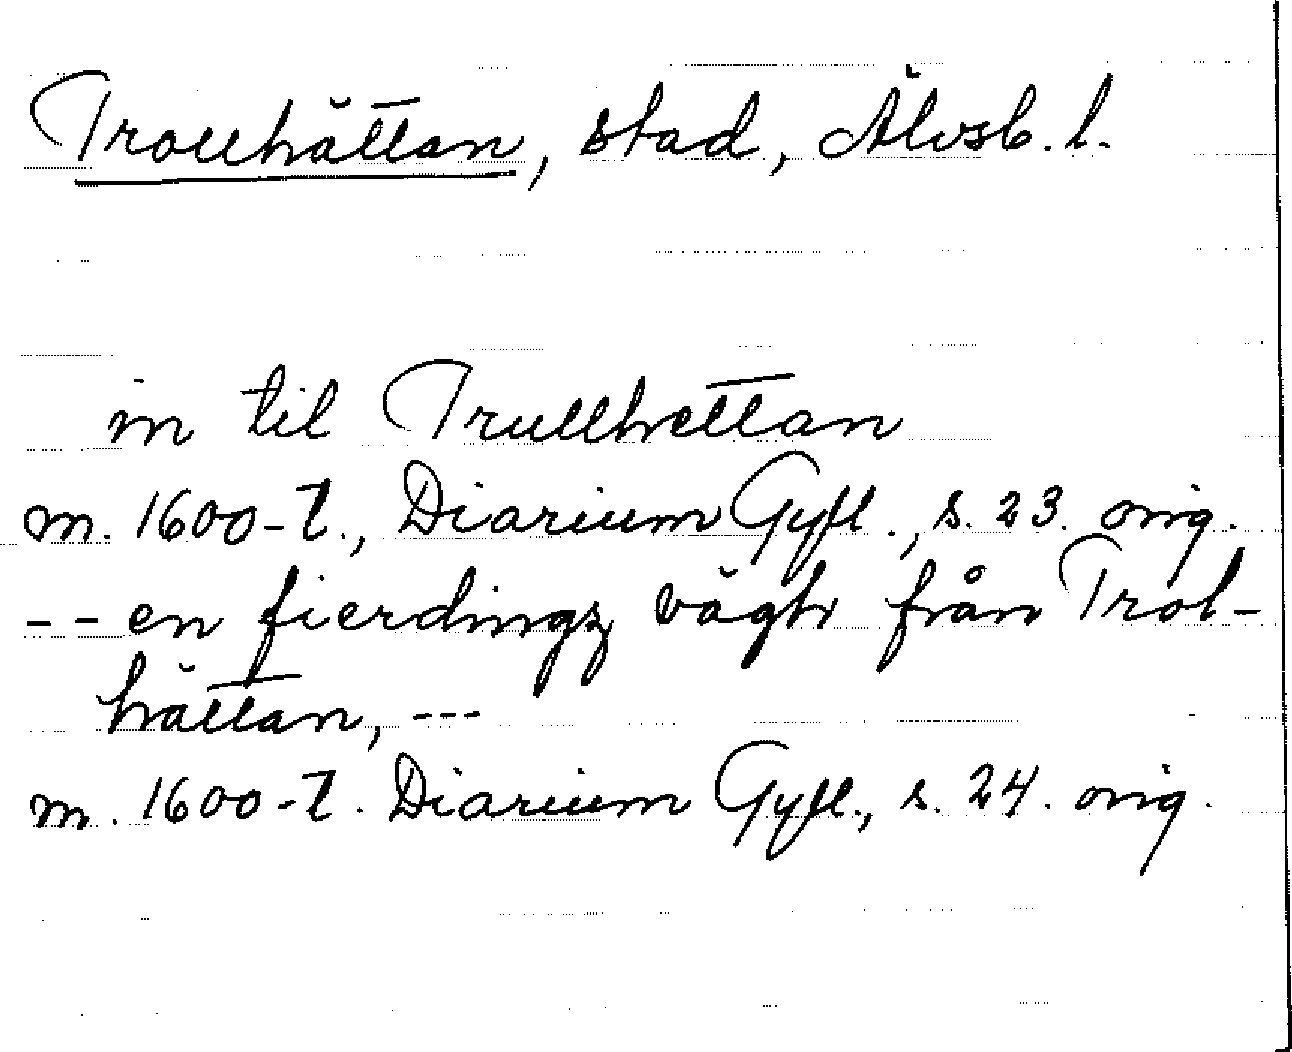 Trollhättan, stad, Älvsb. l.
in til Trullhettan
m. 1600-t., Diarium Gyll., s. 23. orig.
-- en fierdingz vägh från Trol-
hättan, ---
m. 1600-t. Diarium Gyll., s. 24. orig.